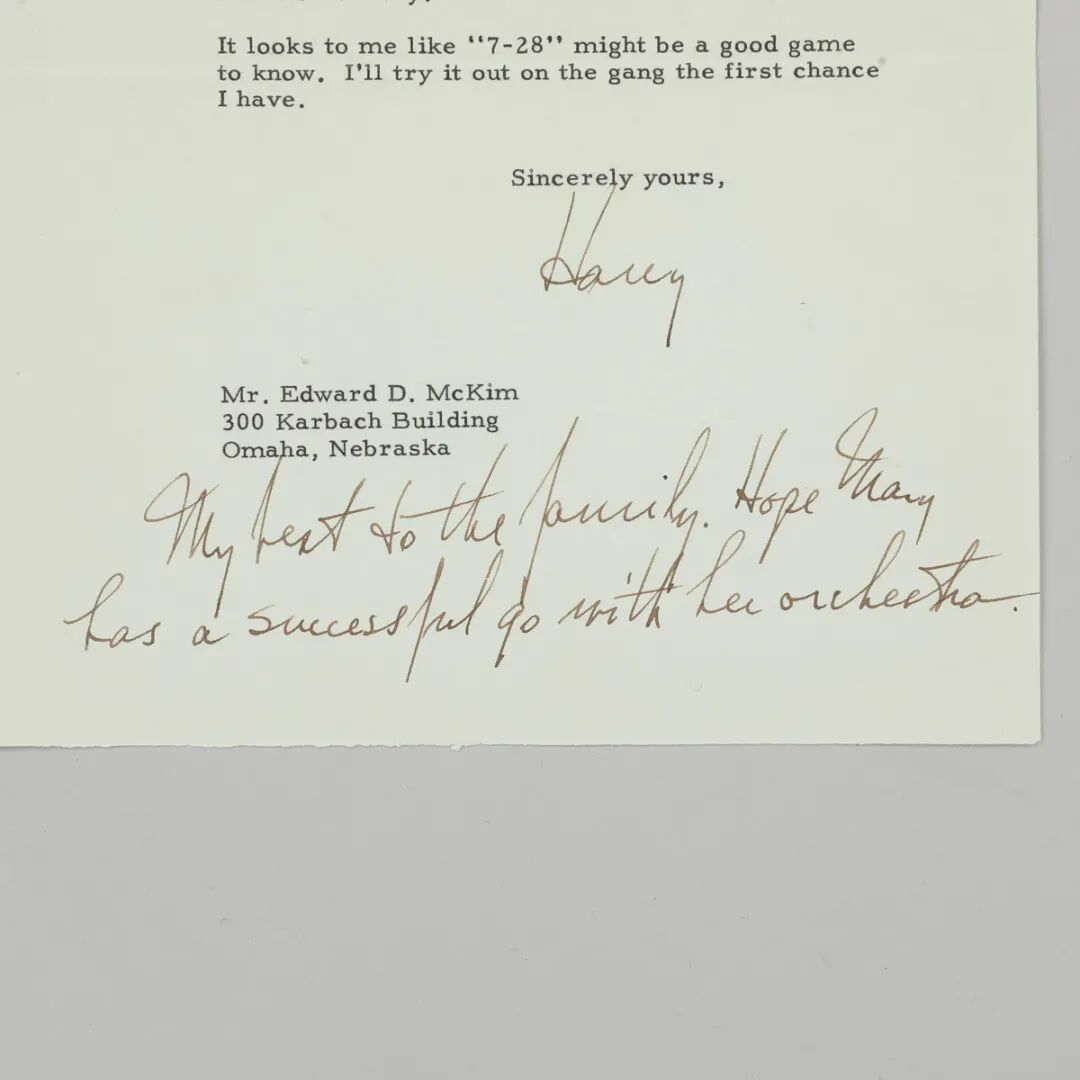 It looks to me like "7-28" might be a good game
to know. I'll try it out on the gang the first chance
I have.
Sincerely yours,
Harry
Mr. Edward D. McKim
300 Karbach Building
Omaha, Nebraska
My best to the family. Hope Mary
has a successful go with her orchestra.